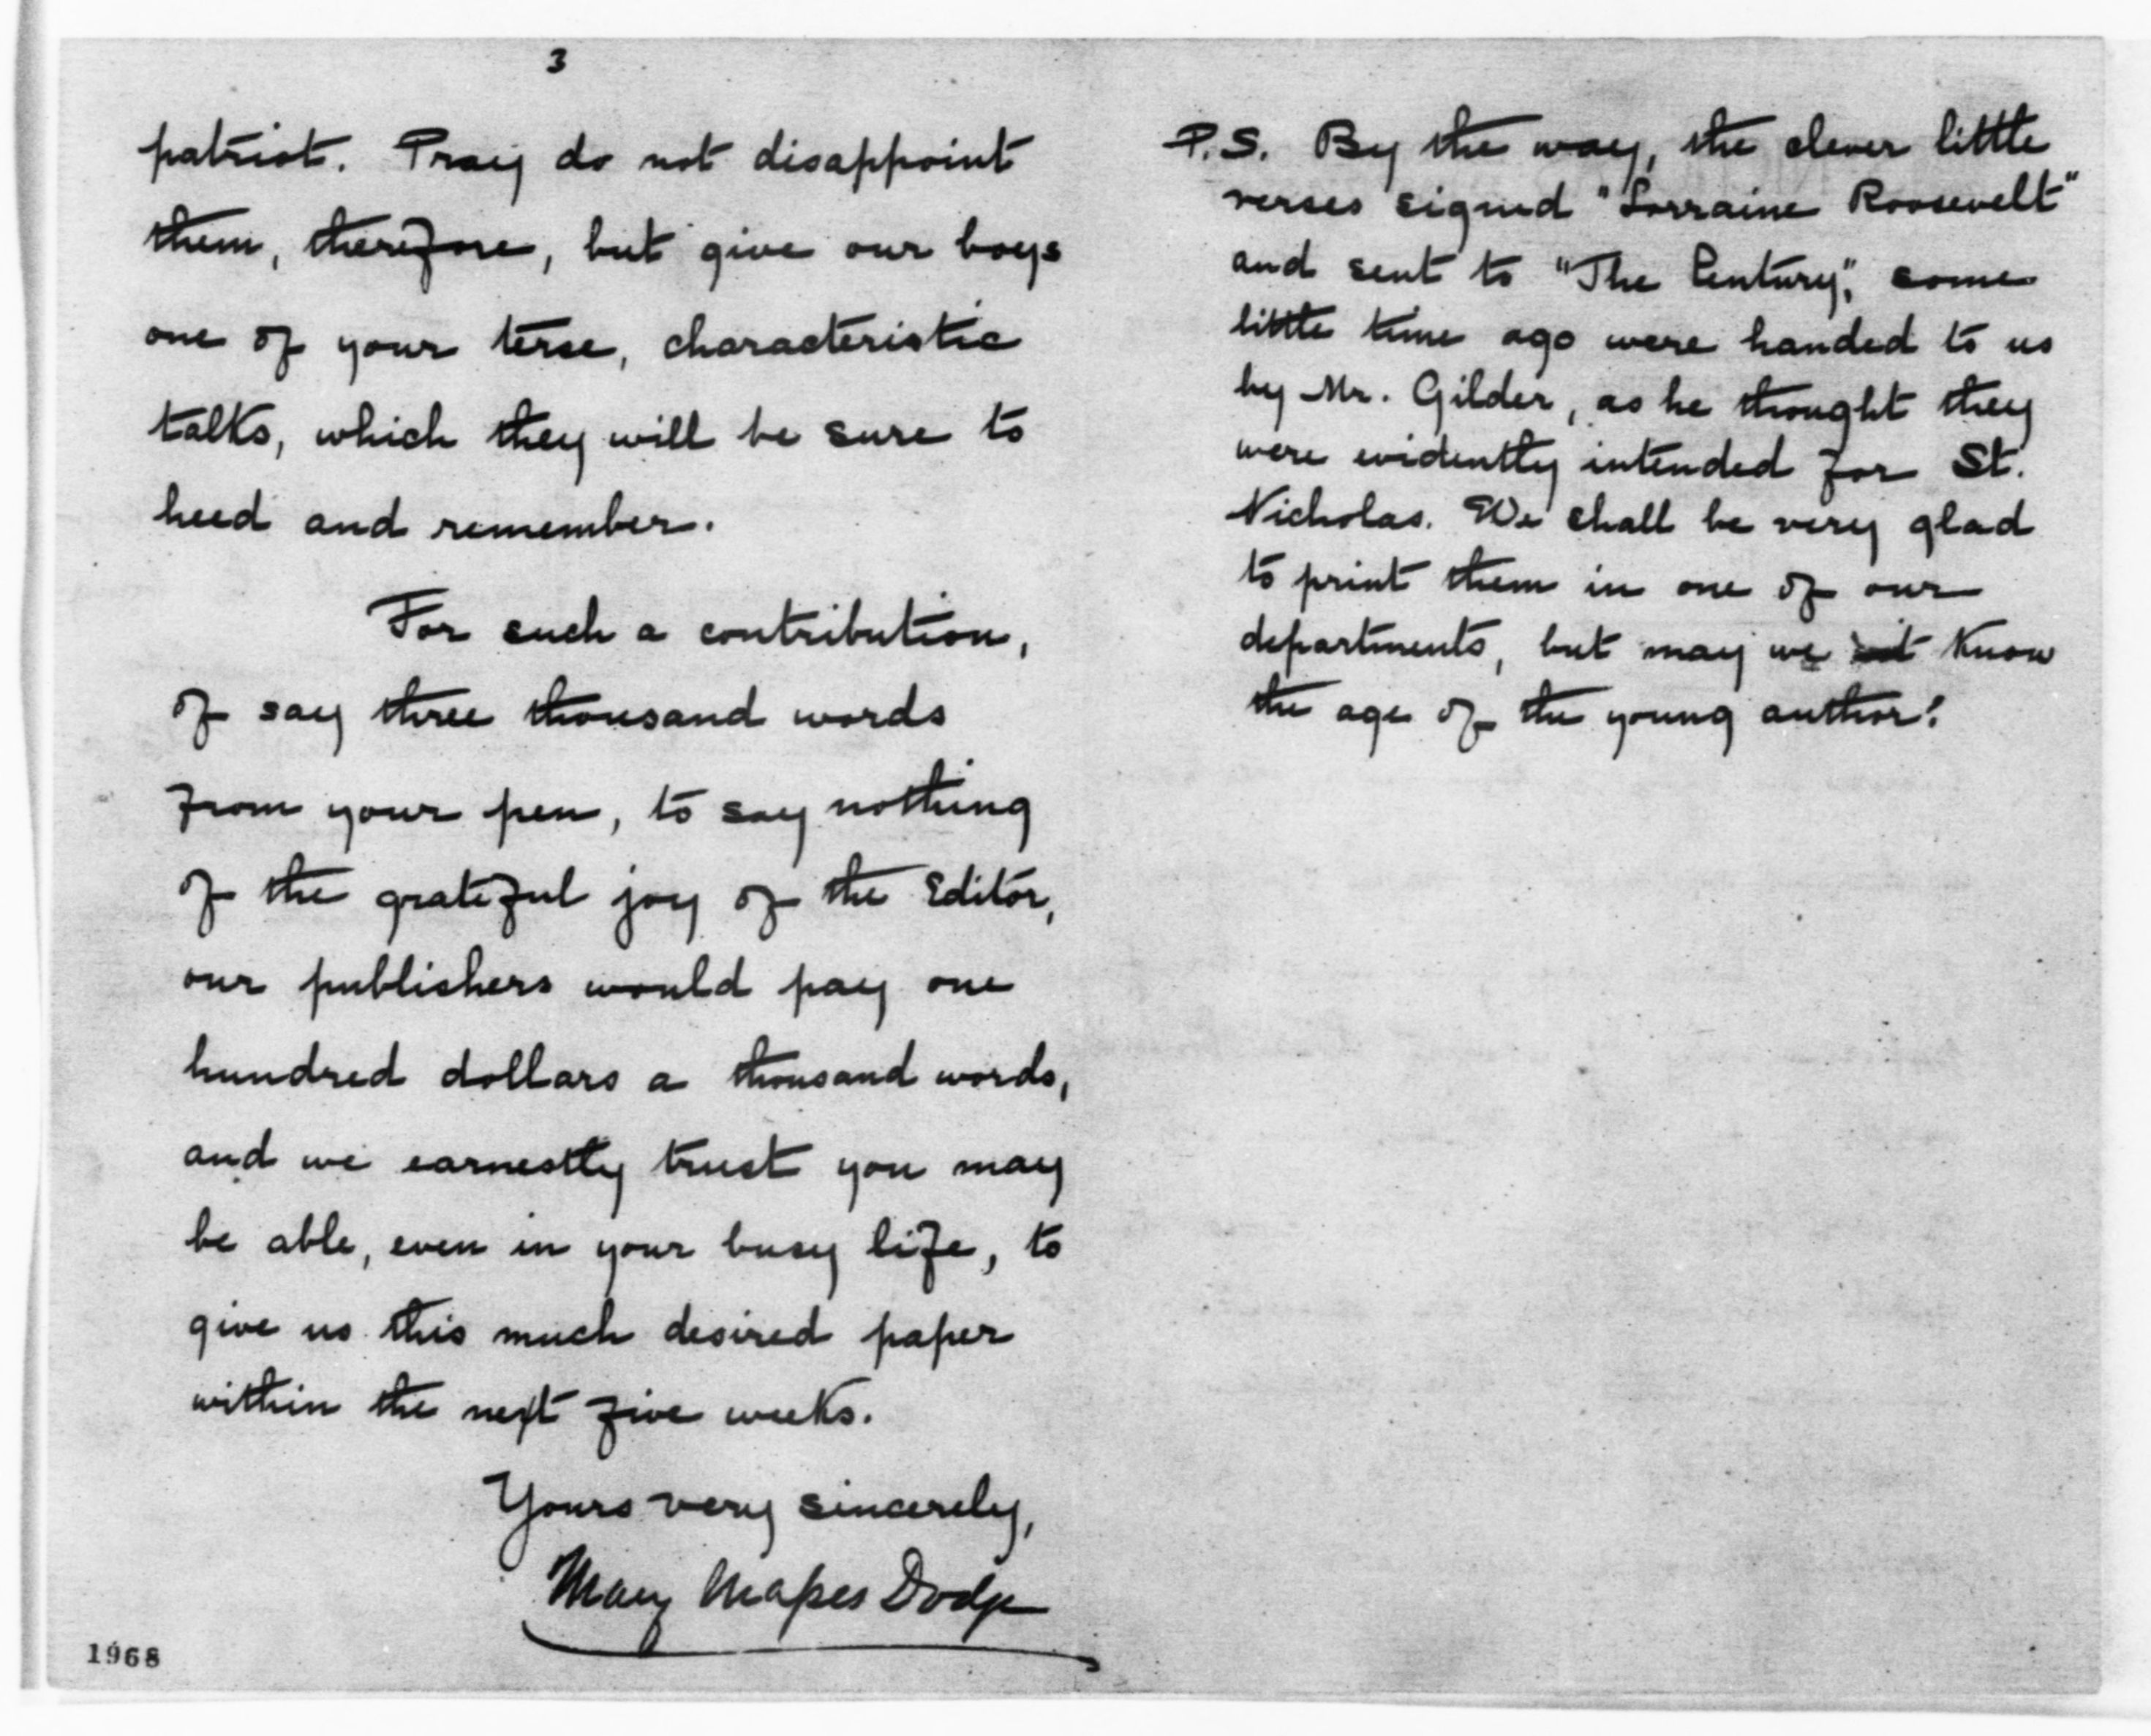 3
patriot. Pray do not disappoint
them, therefore, but give our boys
one of your terse, characteristic
talks, which they will be sure to
heed and remember.
For such a contribution,
of say three thousand words
from your pen, to say nothing
of the grateful joy of the Editor,
our publishers would pay one
hundred dollars a thousand words,
and we earnestly trust you may
be able, even in your busy life, to
give us this much desired paper
within the next five weeks.
Yours very sincerely,
Mary Mapes Dodge
1968
P.S. By the way, the clever little
verses signed "Lorraine Roosevelt"
and sent to "The Century," some
little time ago were handed to us
by Mr. Gilder, as he thought they
were evidently intended for St.
Nicholas. We shall be very glad
to print them in one of our
departments, but may we not know
the age of the young author?